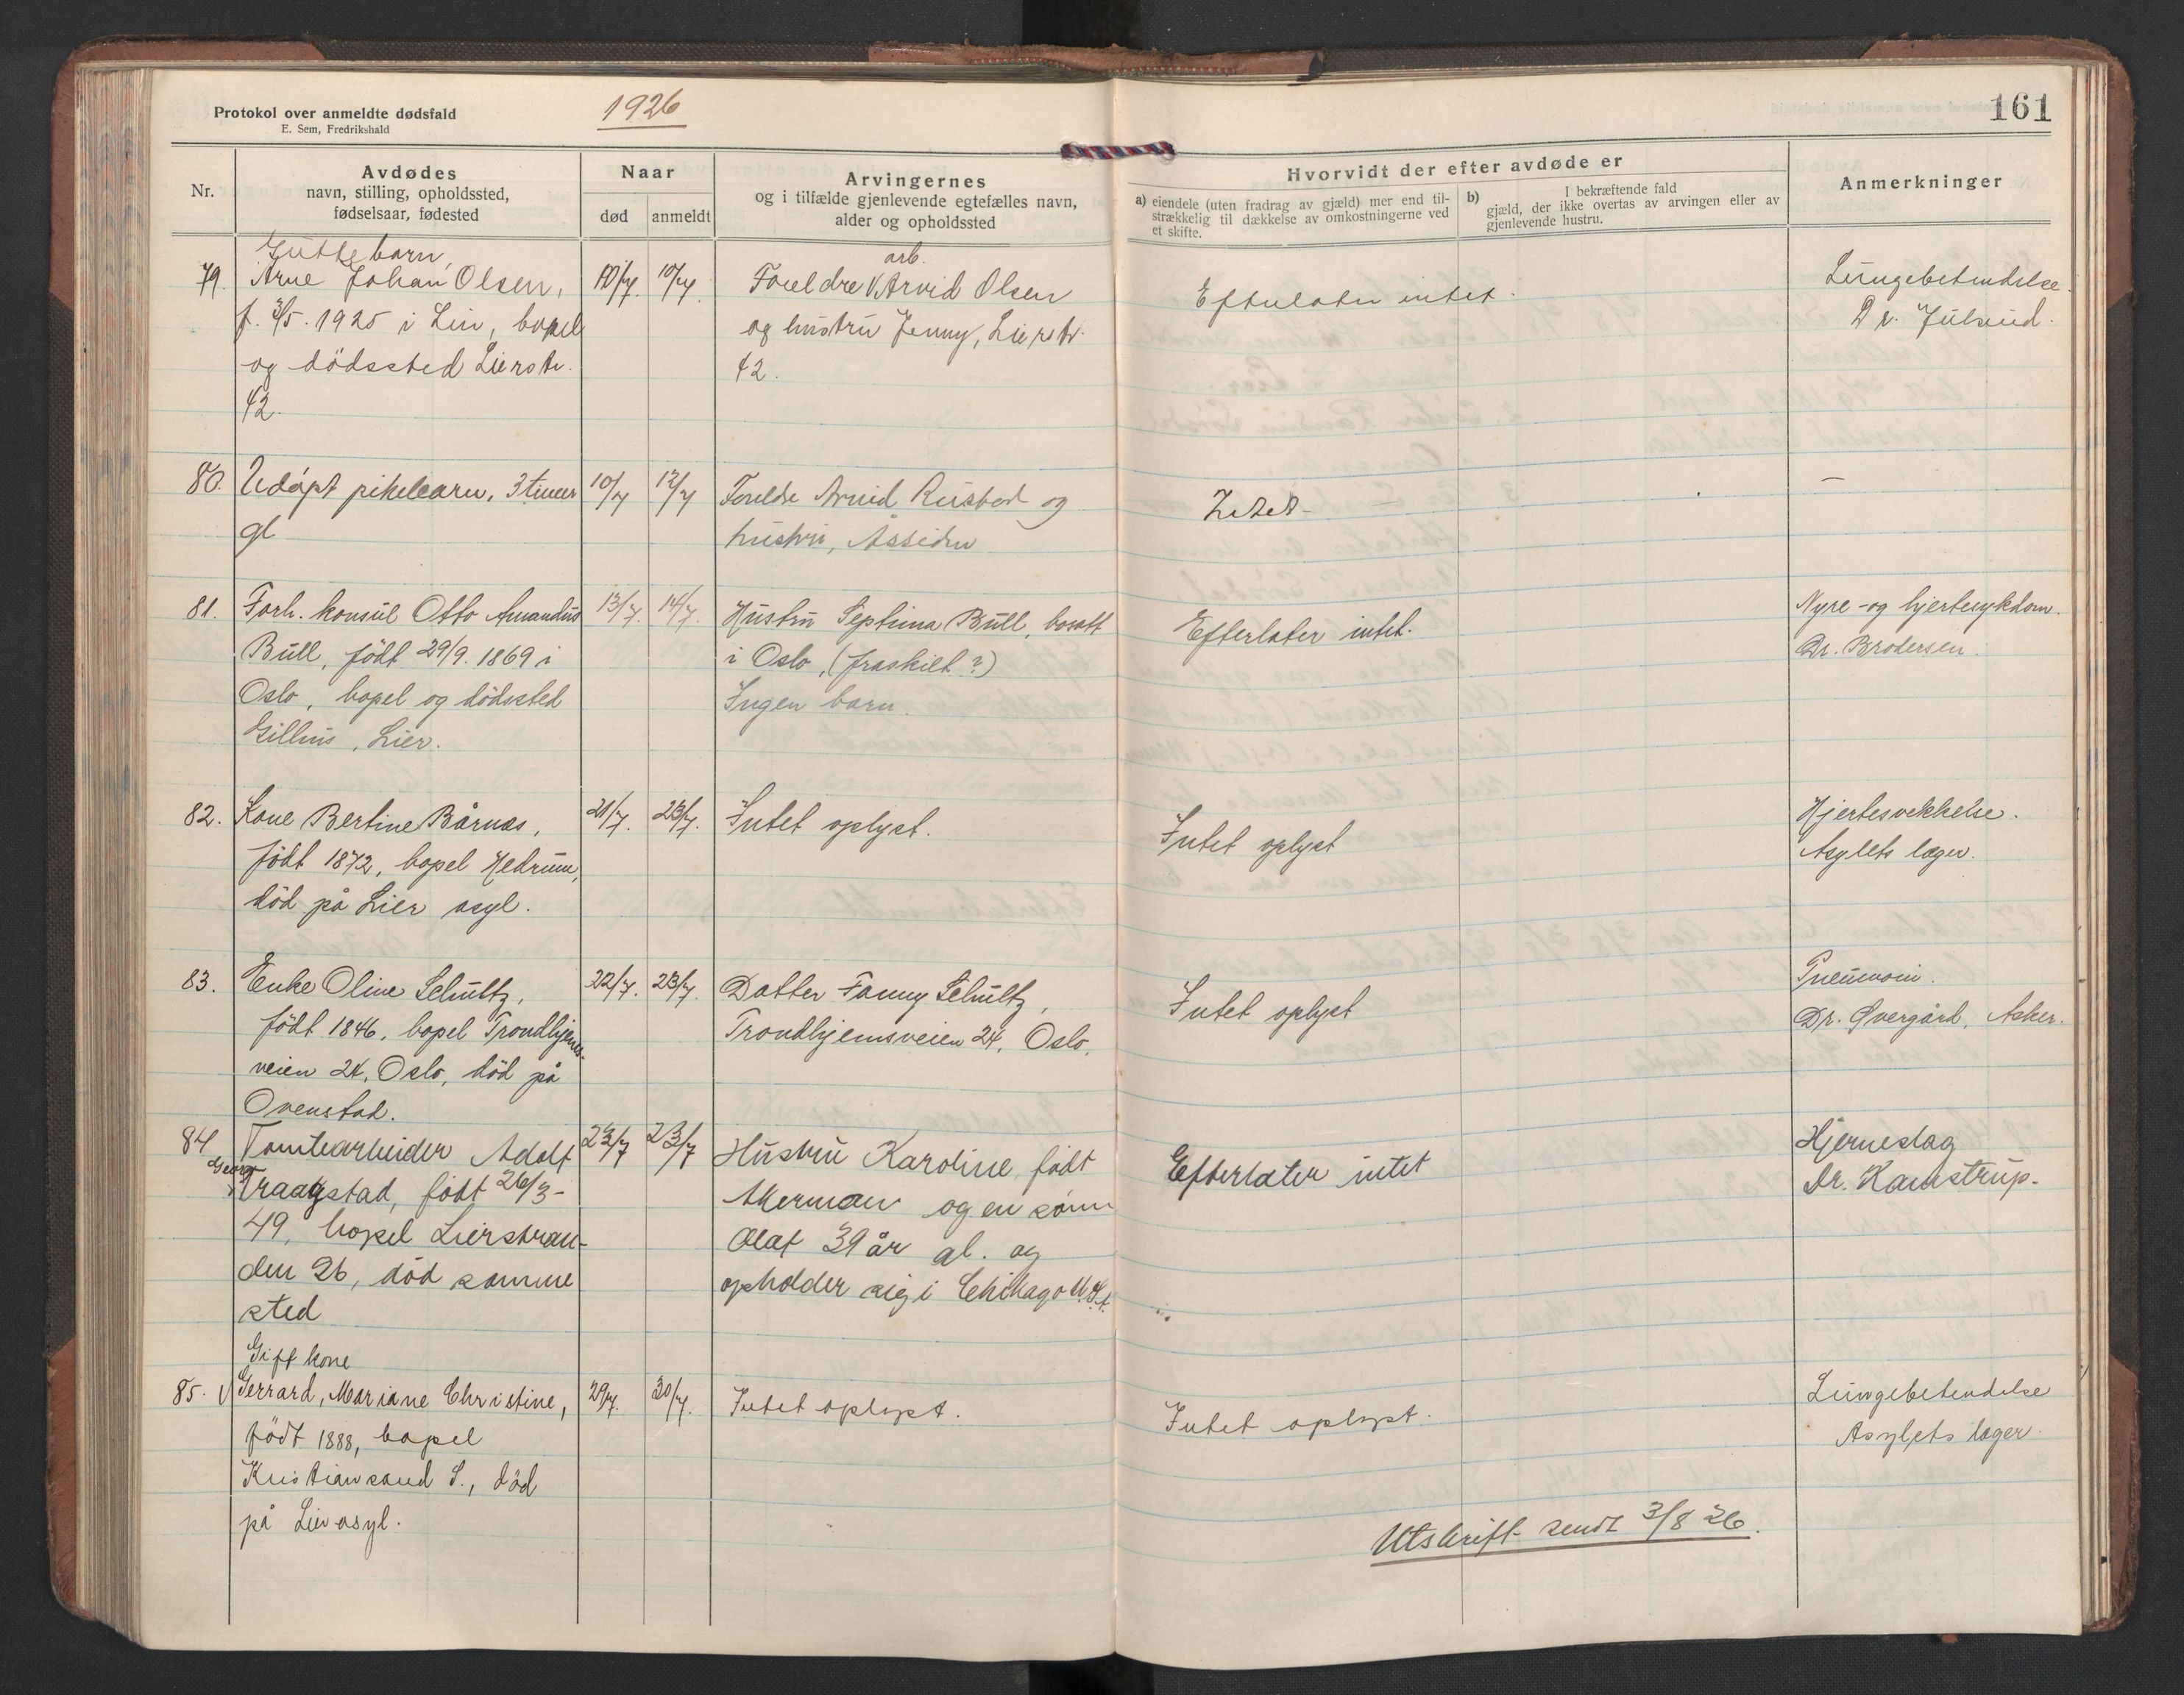 Protokol over anmeldte dødsfald
E. Sem, Fredrikshald
1926
161
Nr.
Avdødes
navn, stilling, opholdssted,
fødselsaar, fødested
Naar
død
anmeldt
Arvingernes
og i tilfælde gjenlevende egtefælles navn,
alder og opholdssted
Hvorvidt der efter avdøde er
a) eiendele (uten fradrag av gjæld) mer end til-
strækkelig til dækkelse av omkostningerne ved
et skifte.
b) I bekræftende fald
gjæld, der ikke overtas av arvingen eller av
gjenlevende hustru.
Anmerkninger
Guttebarn,
79. Arne Johan Olsen,
f. 3/5. 1925 i Lier, bopel
og dödssted Lierstr.
42.
10/7. 10/7.
arb.
Foreldre Arvid Olsen
og hustru Jenny, Lierstr.
42.
Efterlater intet.
Lungebetendelse.
Dr. Julsrud.
80. Udöpt pikebarn, 3 timer
gl
10/7 12/7
Foreldre Arvid Rustad og
hustru, Åssiden
Intet -
—
81. Forh. konsul Otto Amandus
Bull, födt 29/9. 1869 i
Oslo, bopel og dödssted
Gilhus, Lier.
13/7. 14/7.
Hustru Septima Bull, bosatt
i Oslo, (fraskilt?)
Ingen barn.
Efterlater intet.
Nyre- og hjertesykdom.
Dr. Brodersen.
82. Kone Bertine Bårnes,
födt 1872, bopel Hedrum,
död på Lier asyl.
21/7. 23/7.
Intet oplyst.
Intet oplyst
Hjertesvekkelse.
Asylets læge.
83. Enke Oline Schultz,
födt 1846, bopel Trondhjems-
veien 24, Oslo, död på
Ovenstad.
22/7. 23/7.
Datter Fanny Schultz,
Trondhjemsveien 24, Oslo.
Intet oplyst
Pneumoni.
Dr. Øvergård, Asker.
84 Tomtearbeider Adolf
Georg
Kraagstad, födt 26/3-
49, bopel Lierstran-
den 26, död samme
sted
23/7 23/7
Hustru Karoline, födt
Akerman og en sönn
Olaf 39 år gl. og
opholder sig i Chikago U.S.A.
Efterlater intet
Hjerneslag
Dr. Kamstrup.
Gift kone
85. Gerrard, Mariane Christine,
födt 1888, bopel
Kristiansand S., död
på Lier asyl.
29/7. 30/7.
Intet oplyst.
Intet oplyst.
Lungebetendelse
Asylets læger.
Utskrift sendt 3/8 26.